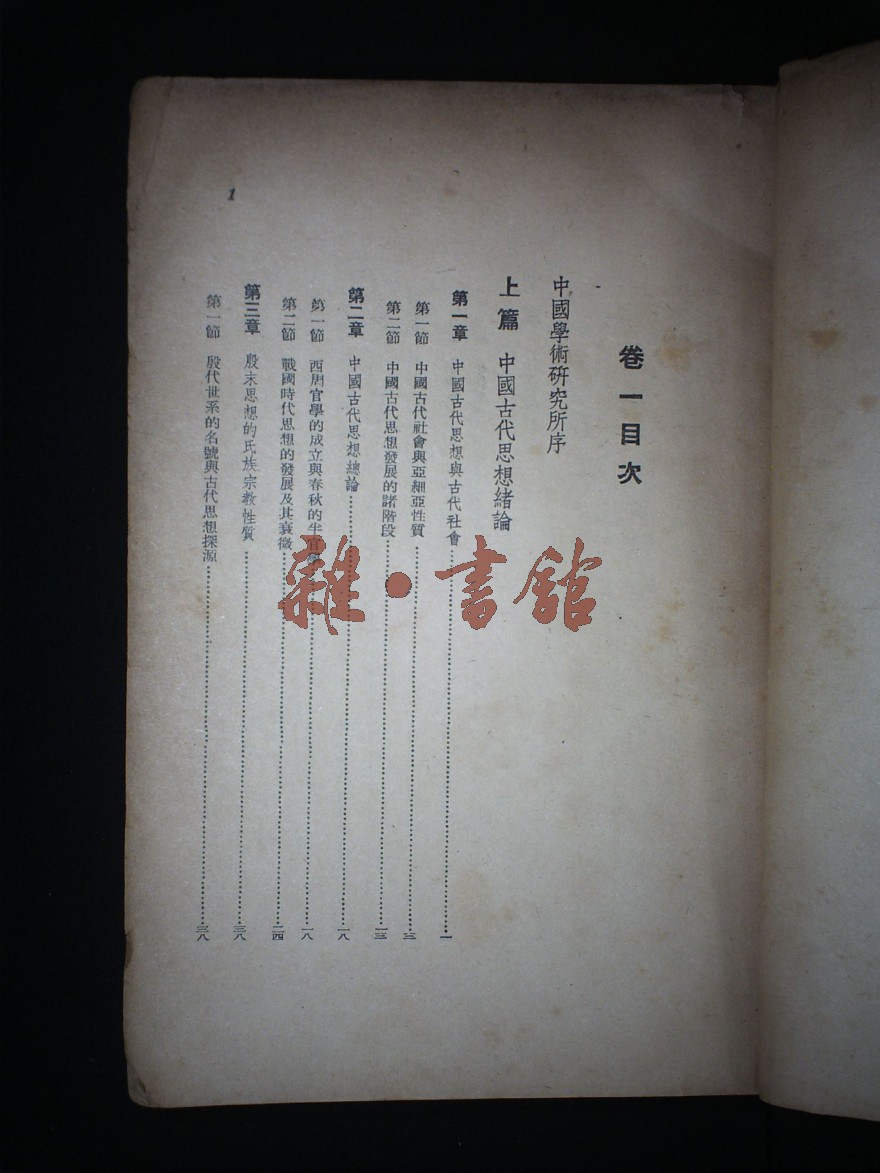 卷一目次
中國學術硏究所序
上篇 中國古代思想緒論
第一章 中國古代思想與古代社會……一
第一節 中國古代社會與亞細亞性質……三
第二節 中國古代思想發展的諸階段……一三
第二章 中國古代思想總論……一八
第一節 西周官學的成立與春秋的半官……一八
第二節 戰國時代思想的發展及其衰微……二四
第三章 殷末思想的氏族宗教性質……三八
第一節 殷代世系的名號與古代思想探源……三八
1
雜·書館